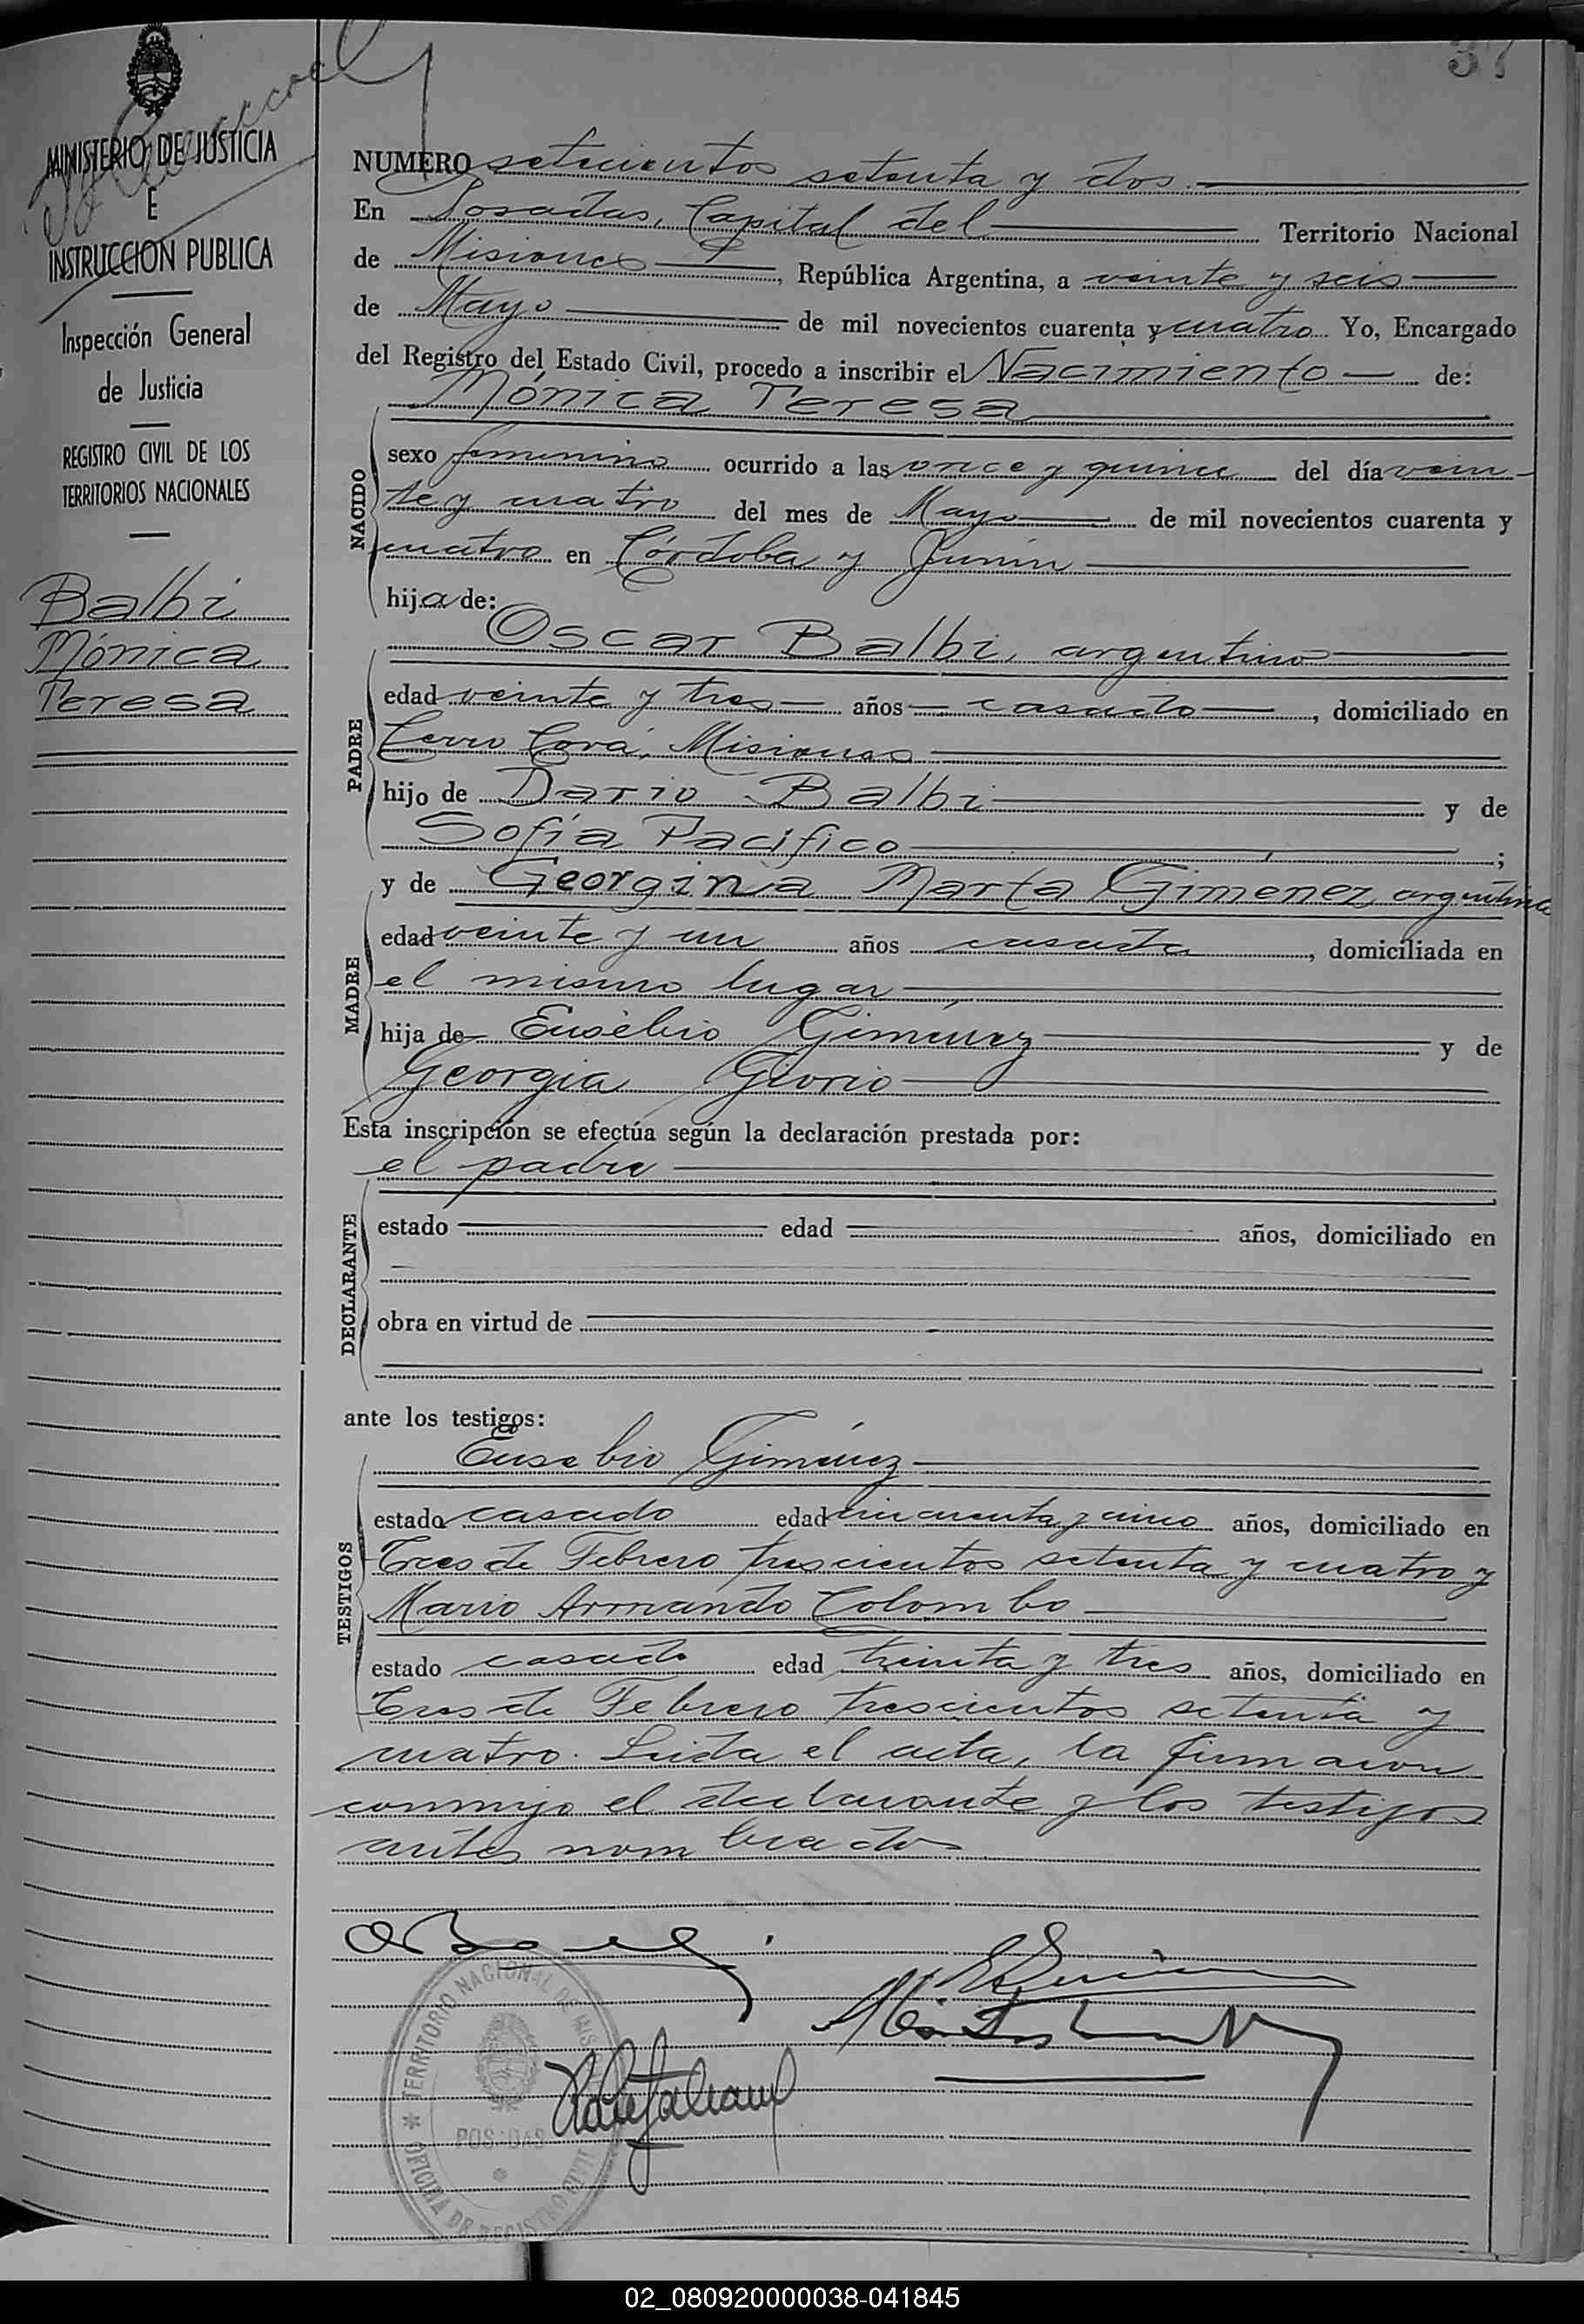 37
MINISTERIO DE JUSTICIA
E
INSTRUCCION PUBLICA
Inspección General
de Justicia
REGISTRO CIVIL DE LOS
TERRITORIOS NACIONALES
Balbi
Mónica
Teresa
NUMERO setecientos setenta y dos.
En Posadas, Capital del Territorio Nacional
de Misiones, República Argentina, a veinte y seis
de Mayo de mil novecientos cuarenta y cuatro Yo, Encargado
del Registro del Estado Civil, procedo a inscribir el Nacimiento de:
Mónica Teresa
NACIDO
sexo femenino ocurrido a las once y quince del día vein-
te y cuatro del mes de Mayo de mil novecientos cuarenta y
cuatro en Córdoba y Junín
hija de:
Oscar Balbi, argentino
PADRE
edad veinte y tres años casado, domiciliado en
Cerro Corá, Misiones
hijo de Dario Balbi y de
Sofía Pacífico;
y de Georgina Marta Gimenez, argentina
MADRE
edad veinte y un años casada, domiciliada en
el mismo lugar
hija de Eusebio Giménez y de
Georgia Giorio
Esta inscripción se efectúa según la declaración prestada por:
el padre
DECLARANTE
estado edad años, domiciliado en
obra en virtud de
ante los testigos:
Eusebio Giménez
TESTIGOS
estado casado edad cincuenta y cinco años, domiciliado en
Tres de Febrero trescientos setenta y cuatro y
Mario Armando Colombo
estado casado edad treinta y tres años, domiciliado en
Tres de Febrero trescientos setenta y
cuatro. Leida el acta, la firmaron
conmigo el declarante y los testigos
antes nombrados
TERRITORIO NACIONAL DE MIS
POSADAS
OFICINA DE REGISTRO CIVIL
02_080920000038-041845